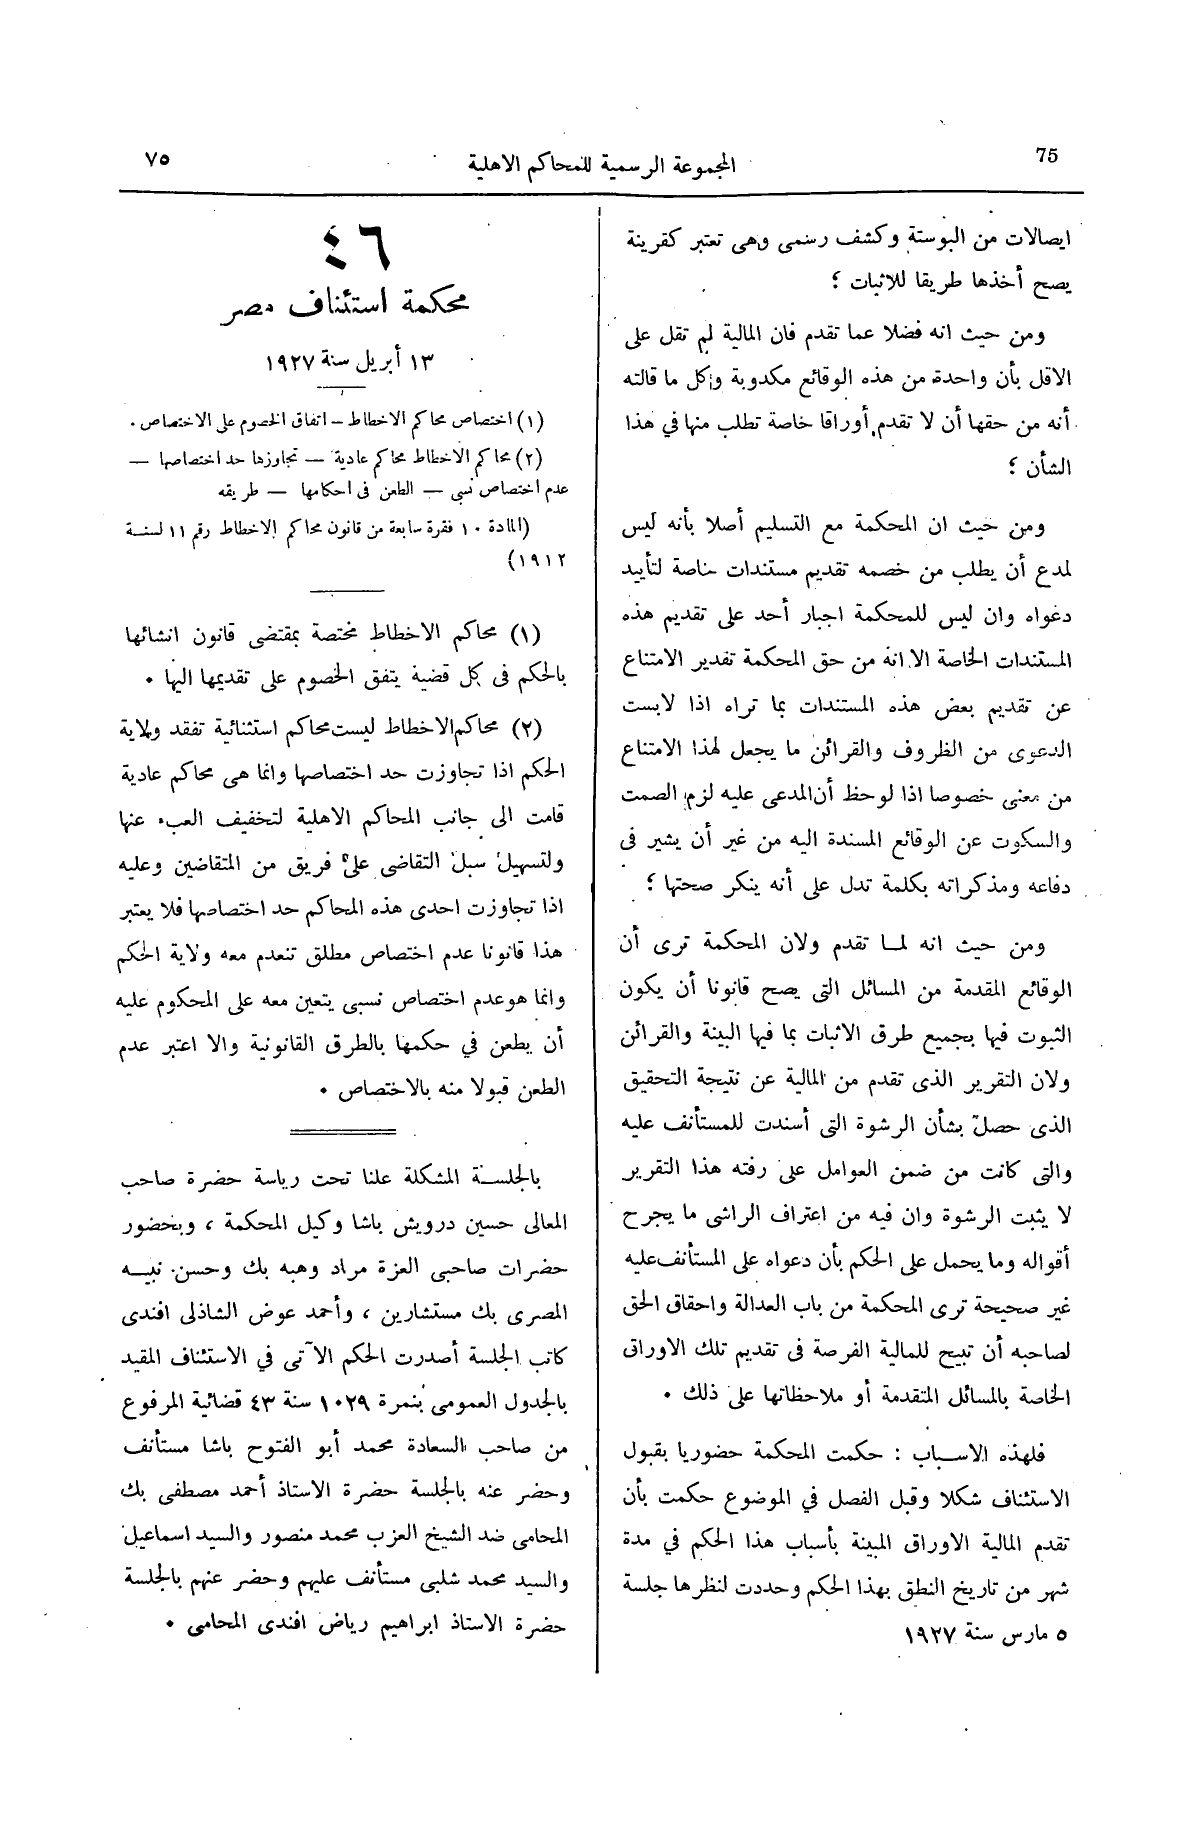 75
المجموعة الرسمية للمحاكم الاهلية
٧٥
ايصالات من البوستة وكشف رسمى وهى تعتبر كقرينة
يصح أخذها طريقا للاثبات ؛
ومن حيث انه فضلا عما تقدم فان المالية لم تقل على
الاقل بأن واحدة من هذه الوقائع مكدوبة وكل ما قالته
أنه من حقها أن لا تقدم أوراقا خاصة تطلب منها في هذا
الشأن ؛
ومن حيث ان المحكمة مع التسليم أصلا بأنه ليس
لمدع أن يطلب من خصمه تقديم مستندات خاصة لتأييد
دعواه وان ليس للمحكمة اجبار أحد على تقديم هذه
المستندات الخاصة الا انه من حق المحكمة تقدير الامتناع
عن تقديم بعض هذه المستندات بما تراه اذا لابست
الدعوى من الظروف والقرائن ما يجعل لهذا الامتناع
من معنى خصوصا اذا لوحظ أن المدعى عليه لزم الصمت
والسكوت عن الوقائع المسندة اليه من غير أن يشير فى
دفاعه ومذكراته بكلمة تدل على أنه ينكر صحتها ؛
ومن حيث انه لما تقدم ولان المحكمة ترى أن
الوقائع المقدمة من المسائل التى يصح قانونا أن يكون
الثبوت فيها بجميع طرق الاثبات بما فيها البينة والقرائن
ولان التقرير الذى تقدم من المالية عن نتيجة التحقيق
الذى حصل بشأن الرشوة التى أسندت للمستأنف عليه
والتى كانت من ضمن العوامل على رفته هذا التقرير
لا يثبت الرشوة وان فيه من اعتراف الراشى ما يجرح
أقواله وما يحمل على الحكم بأن دعواه على المستأنف عليه
غير صحيحة ترى المحكمة من باب العدالة واحقاق الحق
لصاحبه أن تبيح للمالية الفرصة فى تقديم تلك الاوراق
الخاصة بالمسائل المتقدمة أو ملاحظاتها على ذلك .
فلهذه الاسباب : حكمت المحكمة حضوريا بقبول
الاستئناف شكلا وقبل الفصل في الموضوع حكمت بأن
تقدم المالية الاوراق المبينة بأسباب هذا الحكم في مدة
شهر من تاريخ النطق بهذا الحكم وحددت لنظرها جلسة
٥ مارس سنة ١٩٢٧
٤٦
محكمة استئناف مصر
١٣ أبريل سنة ١٩٢٧
(١) اختصاص محاكم الاخطاط – اتفاق الخصوم على الاختصاص .
(٢) محاكم الاخطاط محاكم عادية – تجاوزها حد اختصاصها –
عدم اختصاص نسبى – الطعن فى احكامها – طريقه
(المادة ١٠ فقرة سابعة من قانون محاكم الاخطاط رقم ١١ لسنة
١٩١٢)
(١) محاكم الاخطاط مختصة بمقتضى قانون انشائها
بالحكم فى كل قضية يتفق الخصوم على تقديمها اليها .
(٢) محاكم الاخطاط ليست محاكم استثنائية تفقد ولاية
الحكم اذا تجاوزت حد اختصاصها وانما هى محاكم عادية
قامت الى جانب المحاكم الاهلية لتخفيف العبء عنها
ولتسهيل سبل التقاضى على فريق من المتقاضين وعليه
اذا تجاوزت احدى هذه المحاكم حد اختصاصها فلا يعتبر
هذا قانونا عدم اختصاص مطلق تنعدم معه ولاية الحكم
وانما هو عدم اختصاص نسبى يتعين معه على المحكوم عليه
أن يطعن في حكمها بالطرق القانونية والا اعتبر عدم
الطعن قبولا منه بالاختصاص .
بالجلسة المشكلة علنا تحت رياسة حضرة صاحب
المعالى حسين درويش باشا وكيل المحكمة ، وبحضور
حضرات صاحبى العزة مراد وهبه بك وحسن نبيه
المصرى بك مستشارين ، وأحمد عوض الشاذلى افندى
كاتب الجلسة أصدرت الحكم الآتى في الاستئناف المقيد
بالجدول العمومى بنمرة ١٠٢٩ سنة ٤٣ قضائية المرفوع
من صاحب السعادة محمد أبو الفتوح باشا مستأنف
وحضر عنه بالجلسة حضرة الاستاذ أحمد مصطفى بك
المحامى ضد الشيخ العزب محمد منصور والسيد اسماعيل
والسيد محمد شلبى مستأنف عليهم وحضر عنهم بالجلسة
حضرة الاستاذ ابراهيم رياض افندى المحامى .